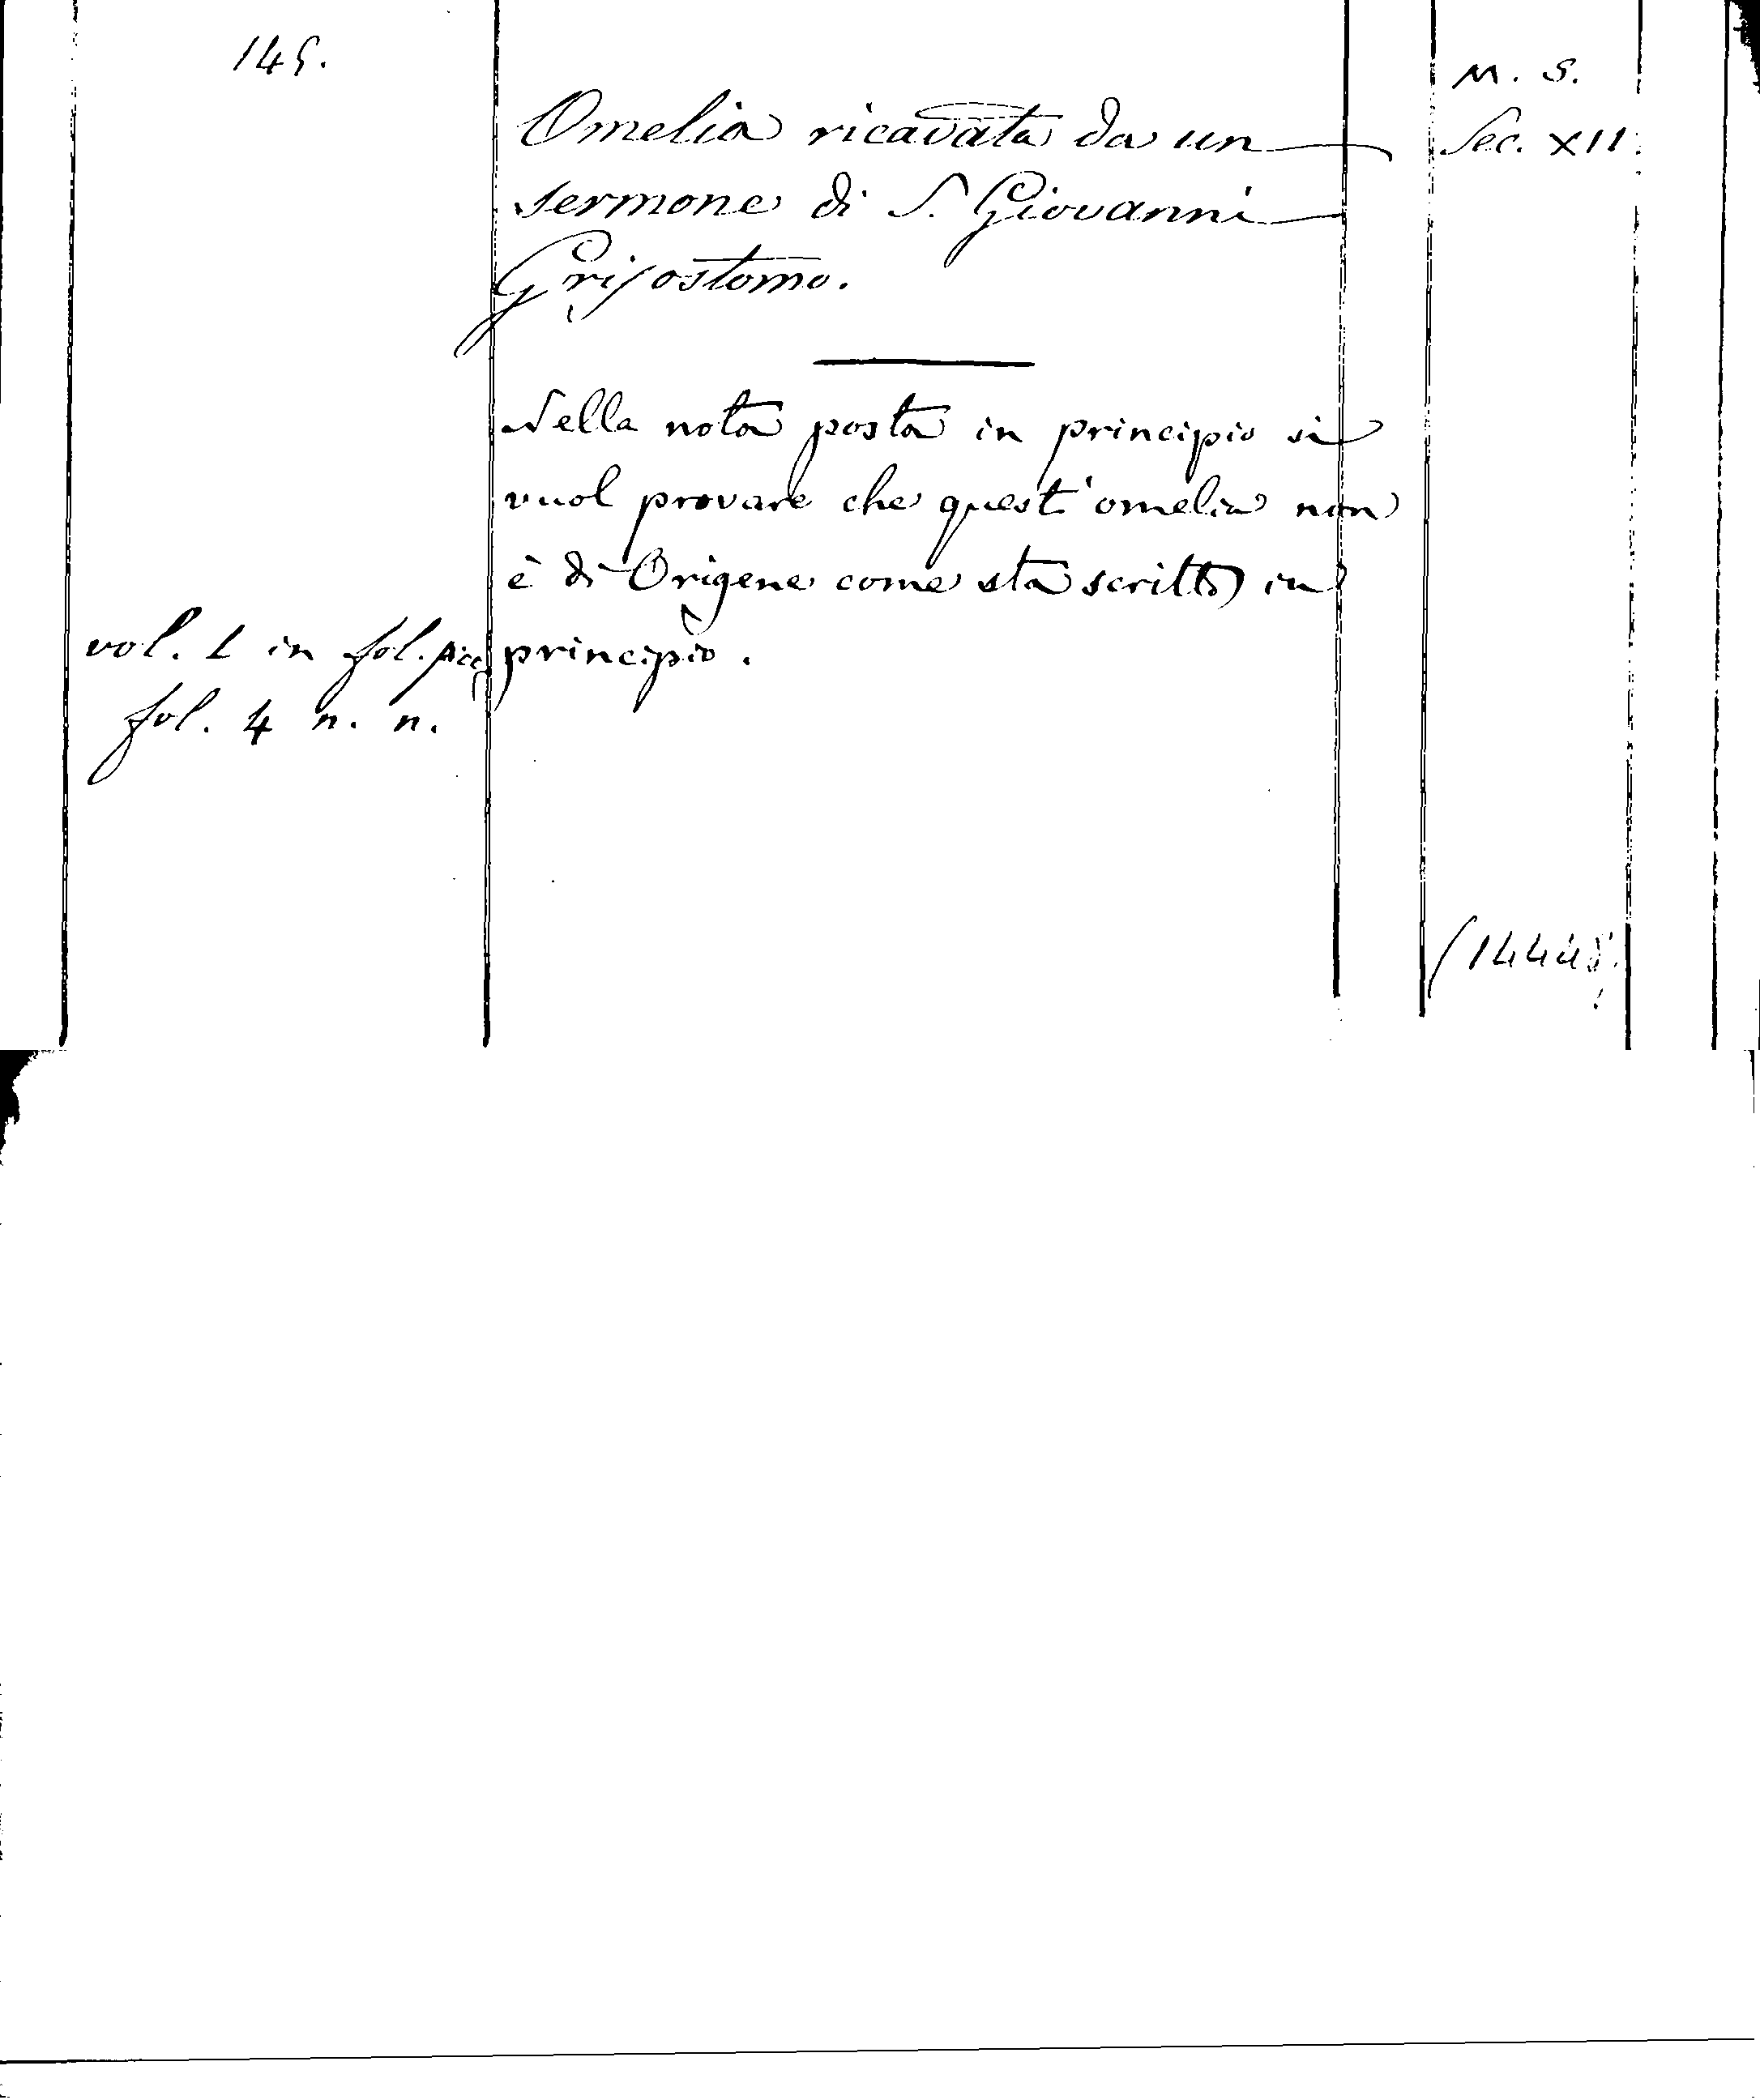 145.
M. S.
Sec. XII.
Omelia ricavata da un
sermone di S. Giovanni
Grisostomo.
Nella nota posta in principio si
vuol provare che quest'omelia non
è di Origene come sta scritto in
principio.
vol. 1 in fol. picc
fol. 4 n. n.
(14448.